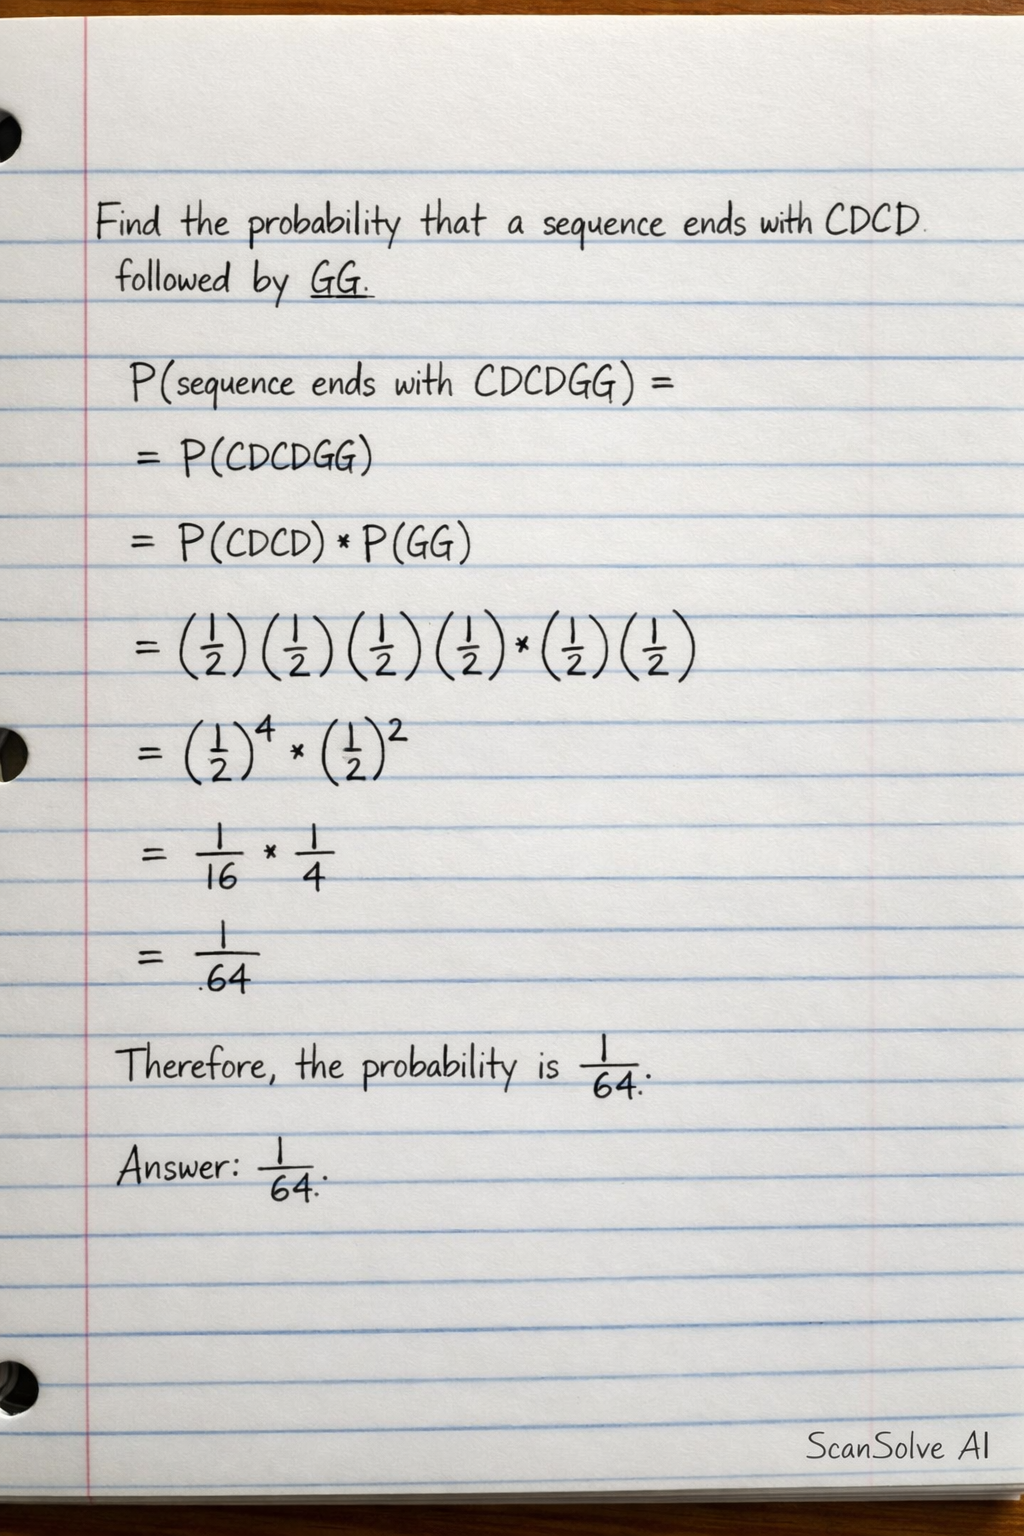 Find the probability that a sequence ends with CDCD.
followed by GG.
P(sequence ends with CDCDGG) =
= P(CDCDGG)
= P(CDCD) * P(GG)
= (1/2) (1/2) (1/2) (1/2) * (1/2) (1/2)
= (1/2)^4 * (1/2)^2
= 1/16 * 1/4
= 1/.64
Therefore, the probability is 1/64.
Answer: 1/64.
ScanSolve AI